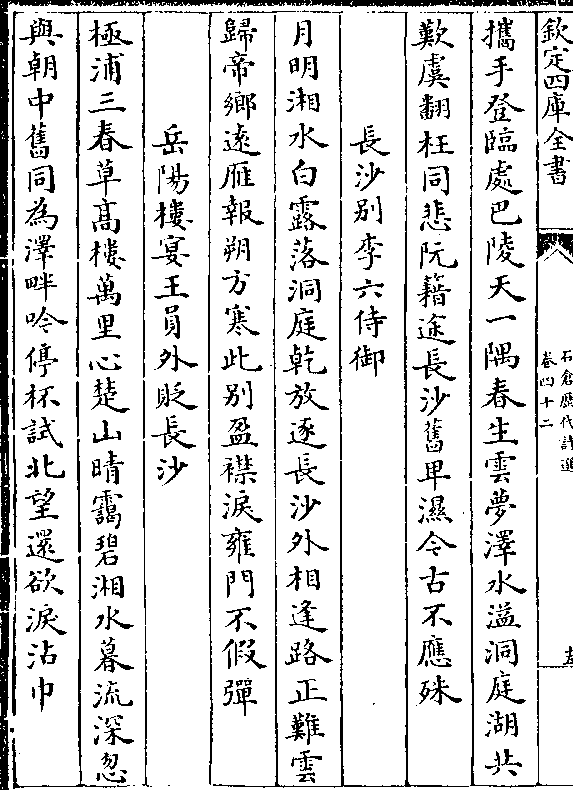 欽定四庫全書
石倉歷代詩選
卷四十二
攜手登臨處巴陵天一隅春生雲夢澤水溢洞庭湖共
歎虞翻枉同悲阮籍途長沙舊卑濕今古不應殊
長沙别李六侍御
月明湘水白露落洞庭乾放逐長沙外相逢路正難雲
歸帝鄉遠雁報朔方寒此别盈襟淚雍門不假彈
岳陽樓宴王員外貶長沙
極浦三春草高樓萬里心楚山晴靄碧湘水暮流深忽
與朝中舊同為澤畔吟停杯試北望還欲淚沾巾